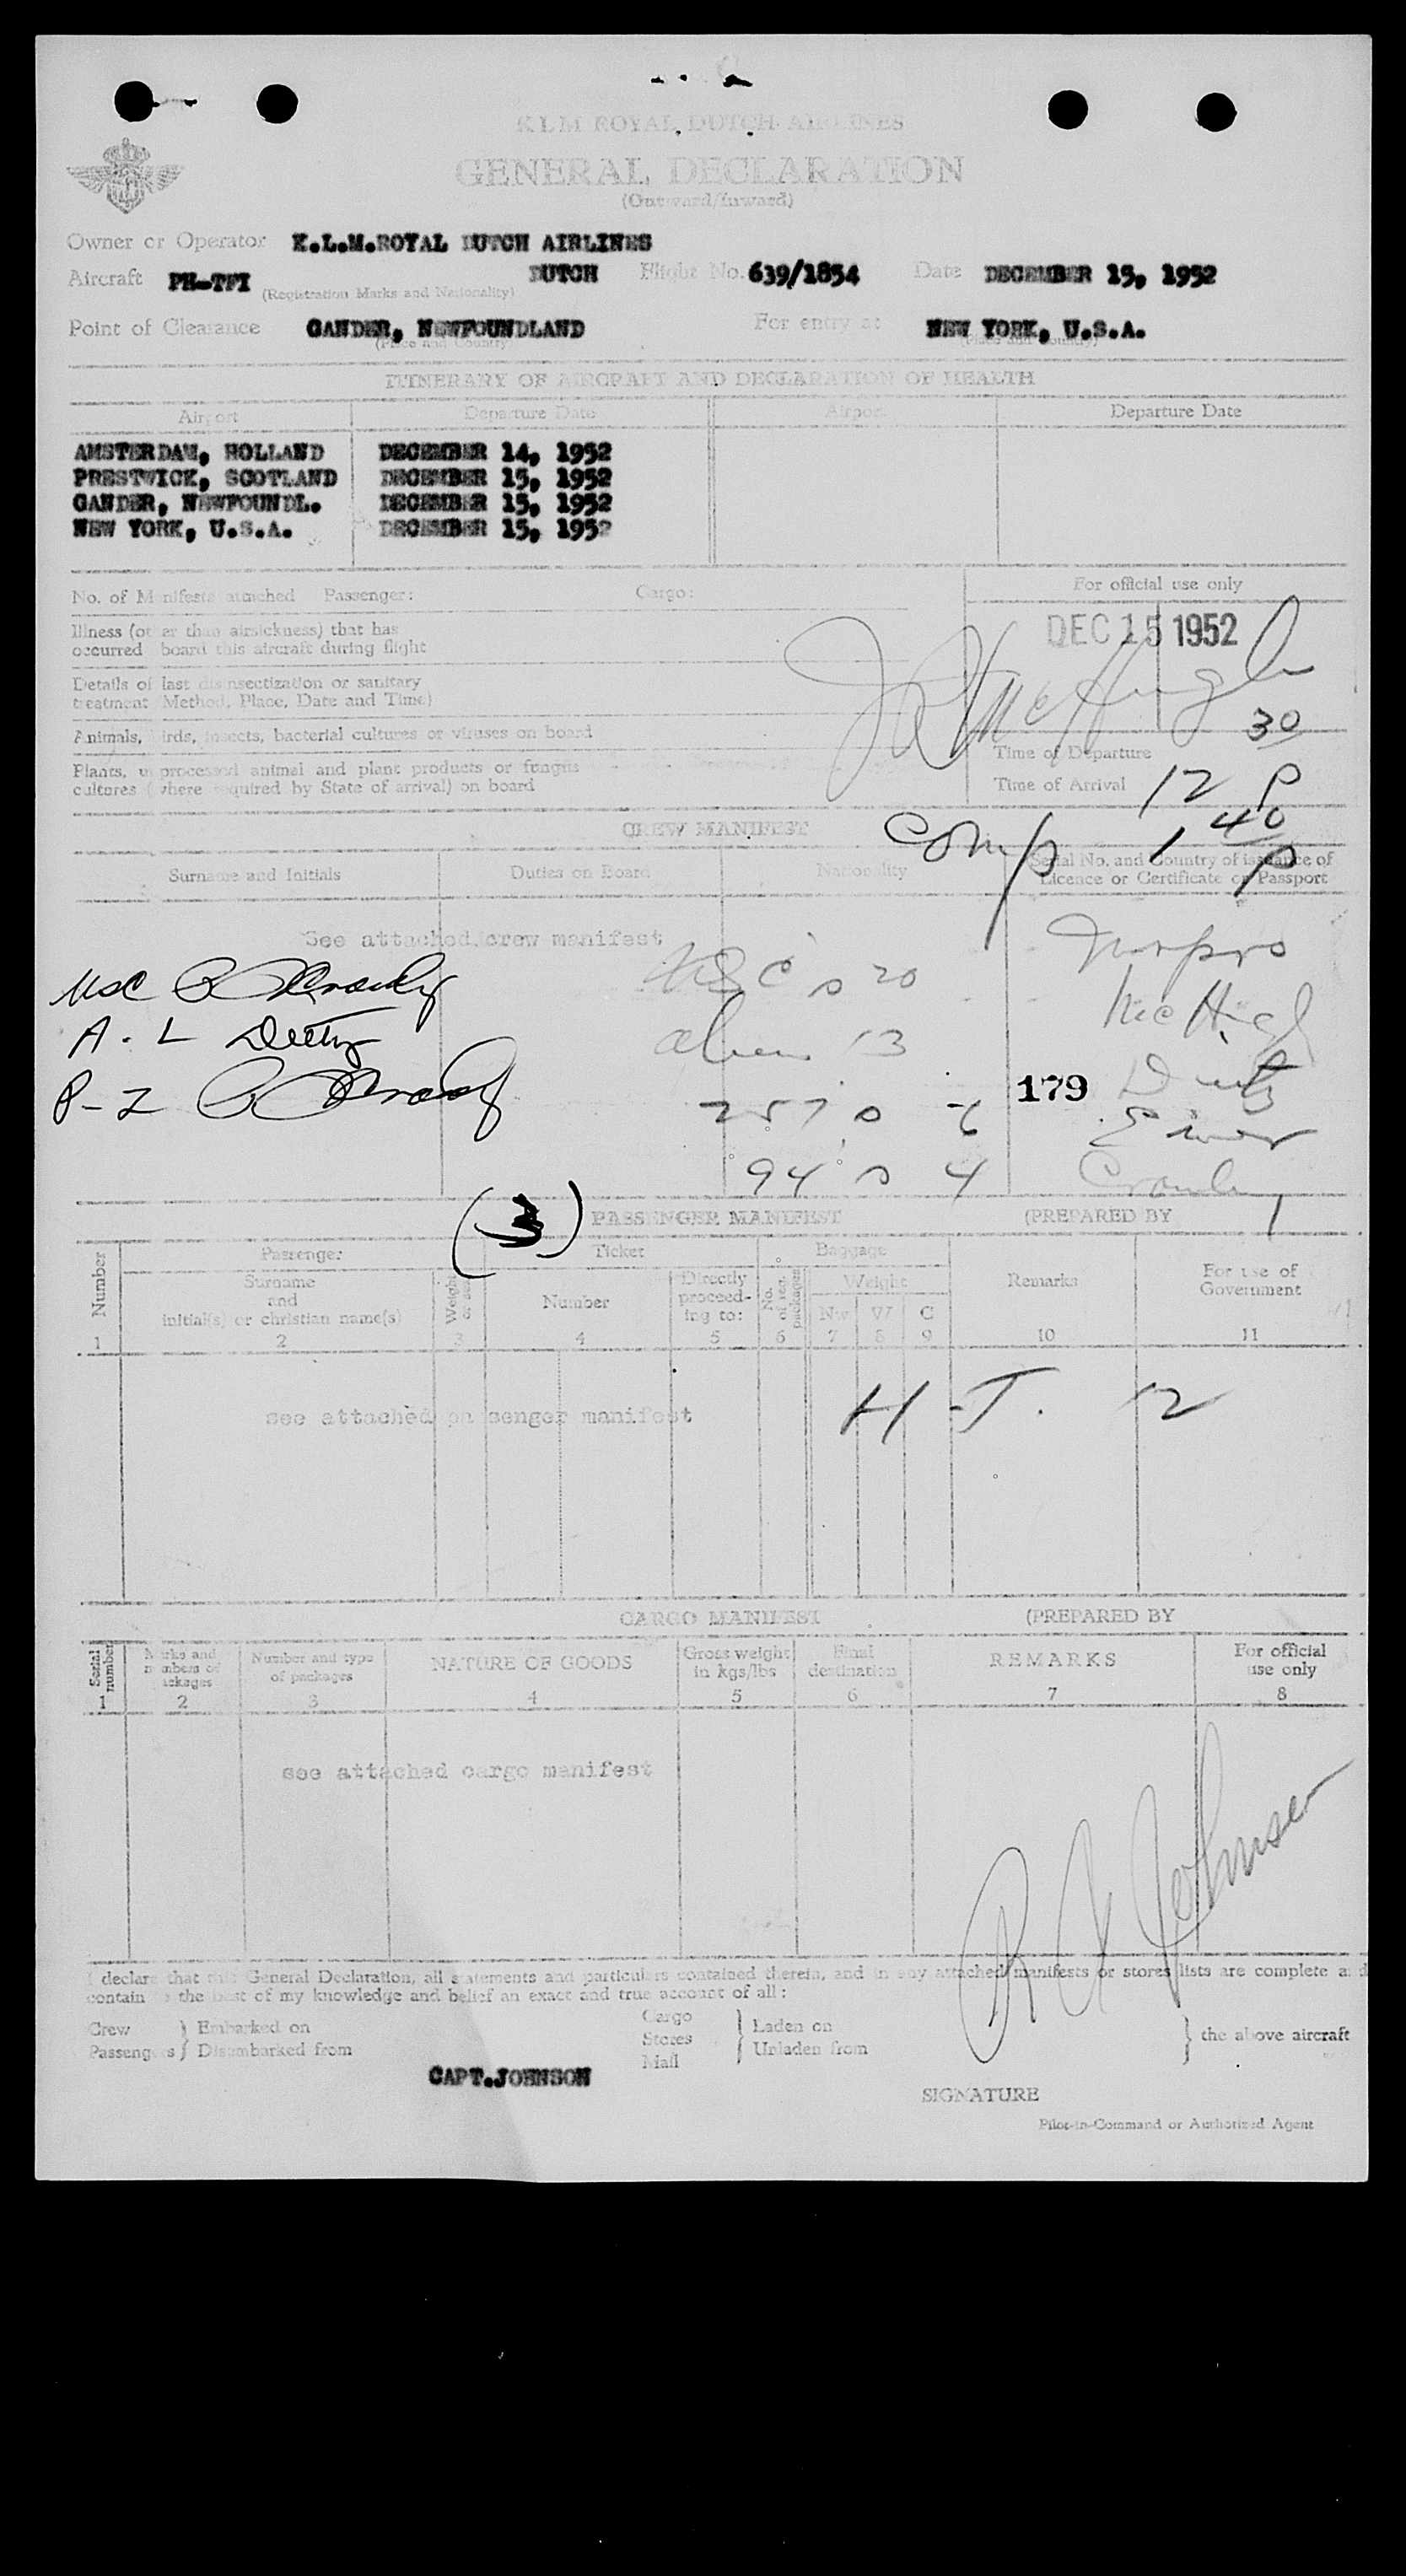 K.L.M. ROYAL DUTCH AIRLINES
GENERAL DECLARATION
(Outward/Inward)
Owner or Operator K.L.M.ROYAL DUTCH AIRLINES
Aircraft PH-TFI DUTCH Flight No. 639/1854 Date DECEMBER 15, 1952
(Registration Marks and Nationality)
Point of Clearance GANDER, NEWFOUNDLAND For entry at NEW YORK, U.S.A.
(Place and Country) (Place and Country)
ITINERARY OF AIRCRAFT AND DECLARATION OF HEALTH
Airport Departure Date Airport Departure Date
AMSTERDAM, HOLLAND DECEMBER 14, 1952
PRESTWICK, SCOTLAND DECEMBER 15, 1952
GANDER, NEWFOUNDL. DECEMBER 15, 1952
NEW YORK, U.S.A. DECEMBER 15, 1952
No. of Manifests attached Passenger: Cargo: For official use only
Illness (other than airsickness) that has
occurred board this aircraft during flight
DEC 15 1952
Details of last disinsectization or sanitary
treatment (Method, Place, Date and Time)
Animals, birds, insects, bacterial cultures or viruses on board
30
Time of Departure
Plants, unprocessed animal and plant products or fungus
cultures (where required by State of arrival) on board
Time of Arrival 12 P
CREW MANIFEST
Comp 1 40 P
Surname and Initials Duties on Board Nationality Serial No. and Country of issuance of
Licence or Certificate or Passport
See attached crew manifest
USC
A. L
P-2
20
13
257 6
179
94 4
(3) PASSENGER MANIFEST (PREPARED BY
Number Passenger Ticket Baggage Remarks For use of
Government
Surname
and
initial(s) or christian name(s)
Weight
Number
Directly
proceed-
ing to:
No.
of reg.
packages
Weight
Nw W C
1 2 3 4 5 6 7 8 9 10 11
see attached passenger manifest
H-T. 12
CARGO MANIFEST (PREPARED BY
Serial
number
Marks and
numbers of
packages
Number and type
of packages
NATURE OF GOODS
Gross weight
in kgs/lbs
Final
destination
REMARKS
For official
use only
1 2 3 4 5 6 7 8
see attached cargo manifest
I declare that this General Declaration, all statements and particulars contained therein, and in any attached manifests or stores lists are complete and
contain to the best of my knowledge and belief an exact and true account of all:
Crew
Passengers
Embarked on
Disembarked from
Cargo
Stores
Mail
Laden on
Unladen from
the above aircraft
CAPT.JOHNSON
SIGNATURE
Pilot-in-Command or Authorized Agent